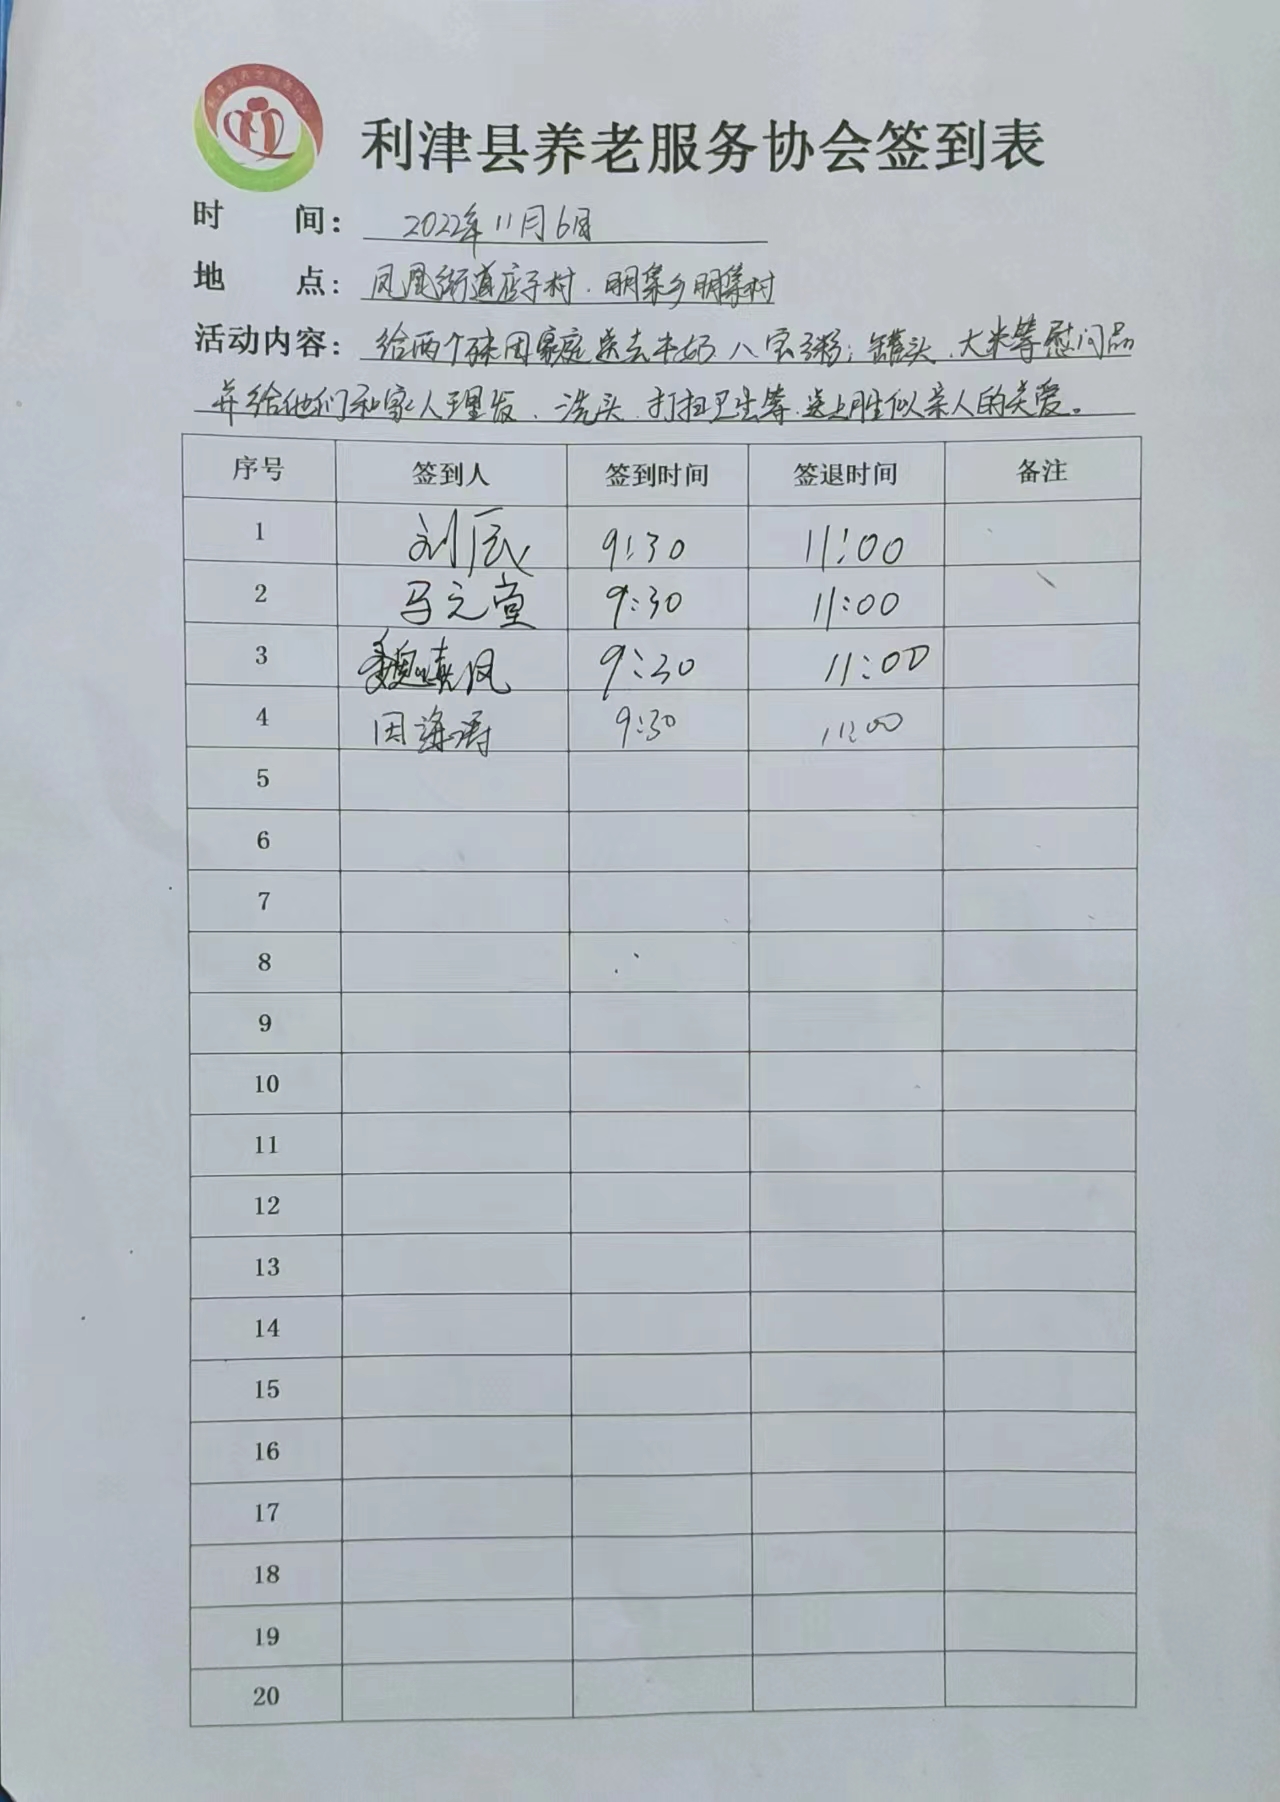 利津县养老服务协会签到表
时 间: 2022年11月6日
地 点: 凤凰街道店子村、明集乡明集村
活动内容: 给两个殊困家庭送去牛奶、八宝粥、罐头、大米等慰问品
并给他们和家人理发、洗头、打扫卫生等、送上胜似亲人的关爱。
序号 签到人 签到时间 签退时间 备注
1 刘辰 9:30 11:00
2 马元堂 9:30 11:00
3 魏 凤 9:30 11:00
4 海涛 9:30 11:00
5
6
7
8
9
10
11
12
13
14
15
16
17
18
19
20